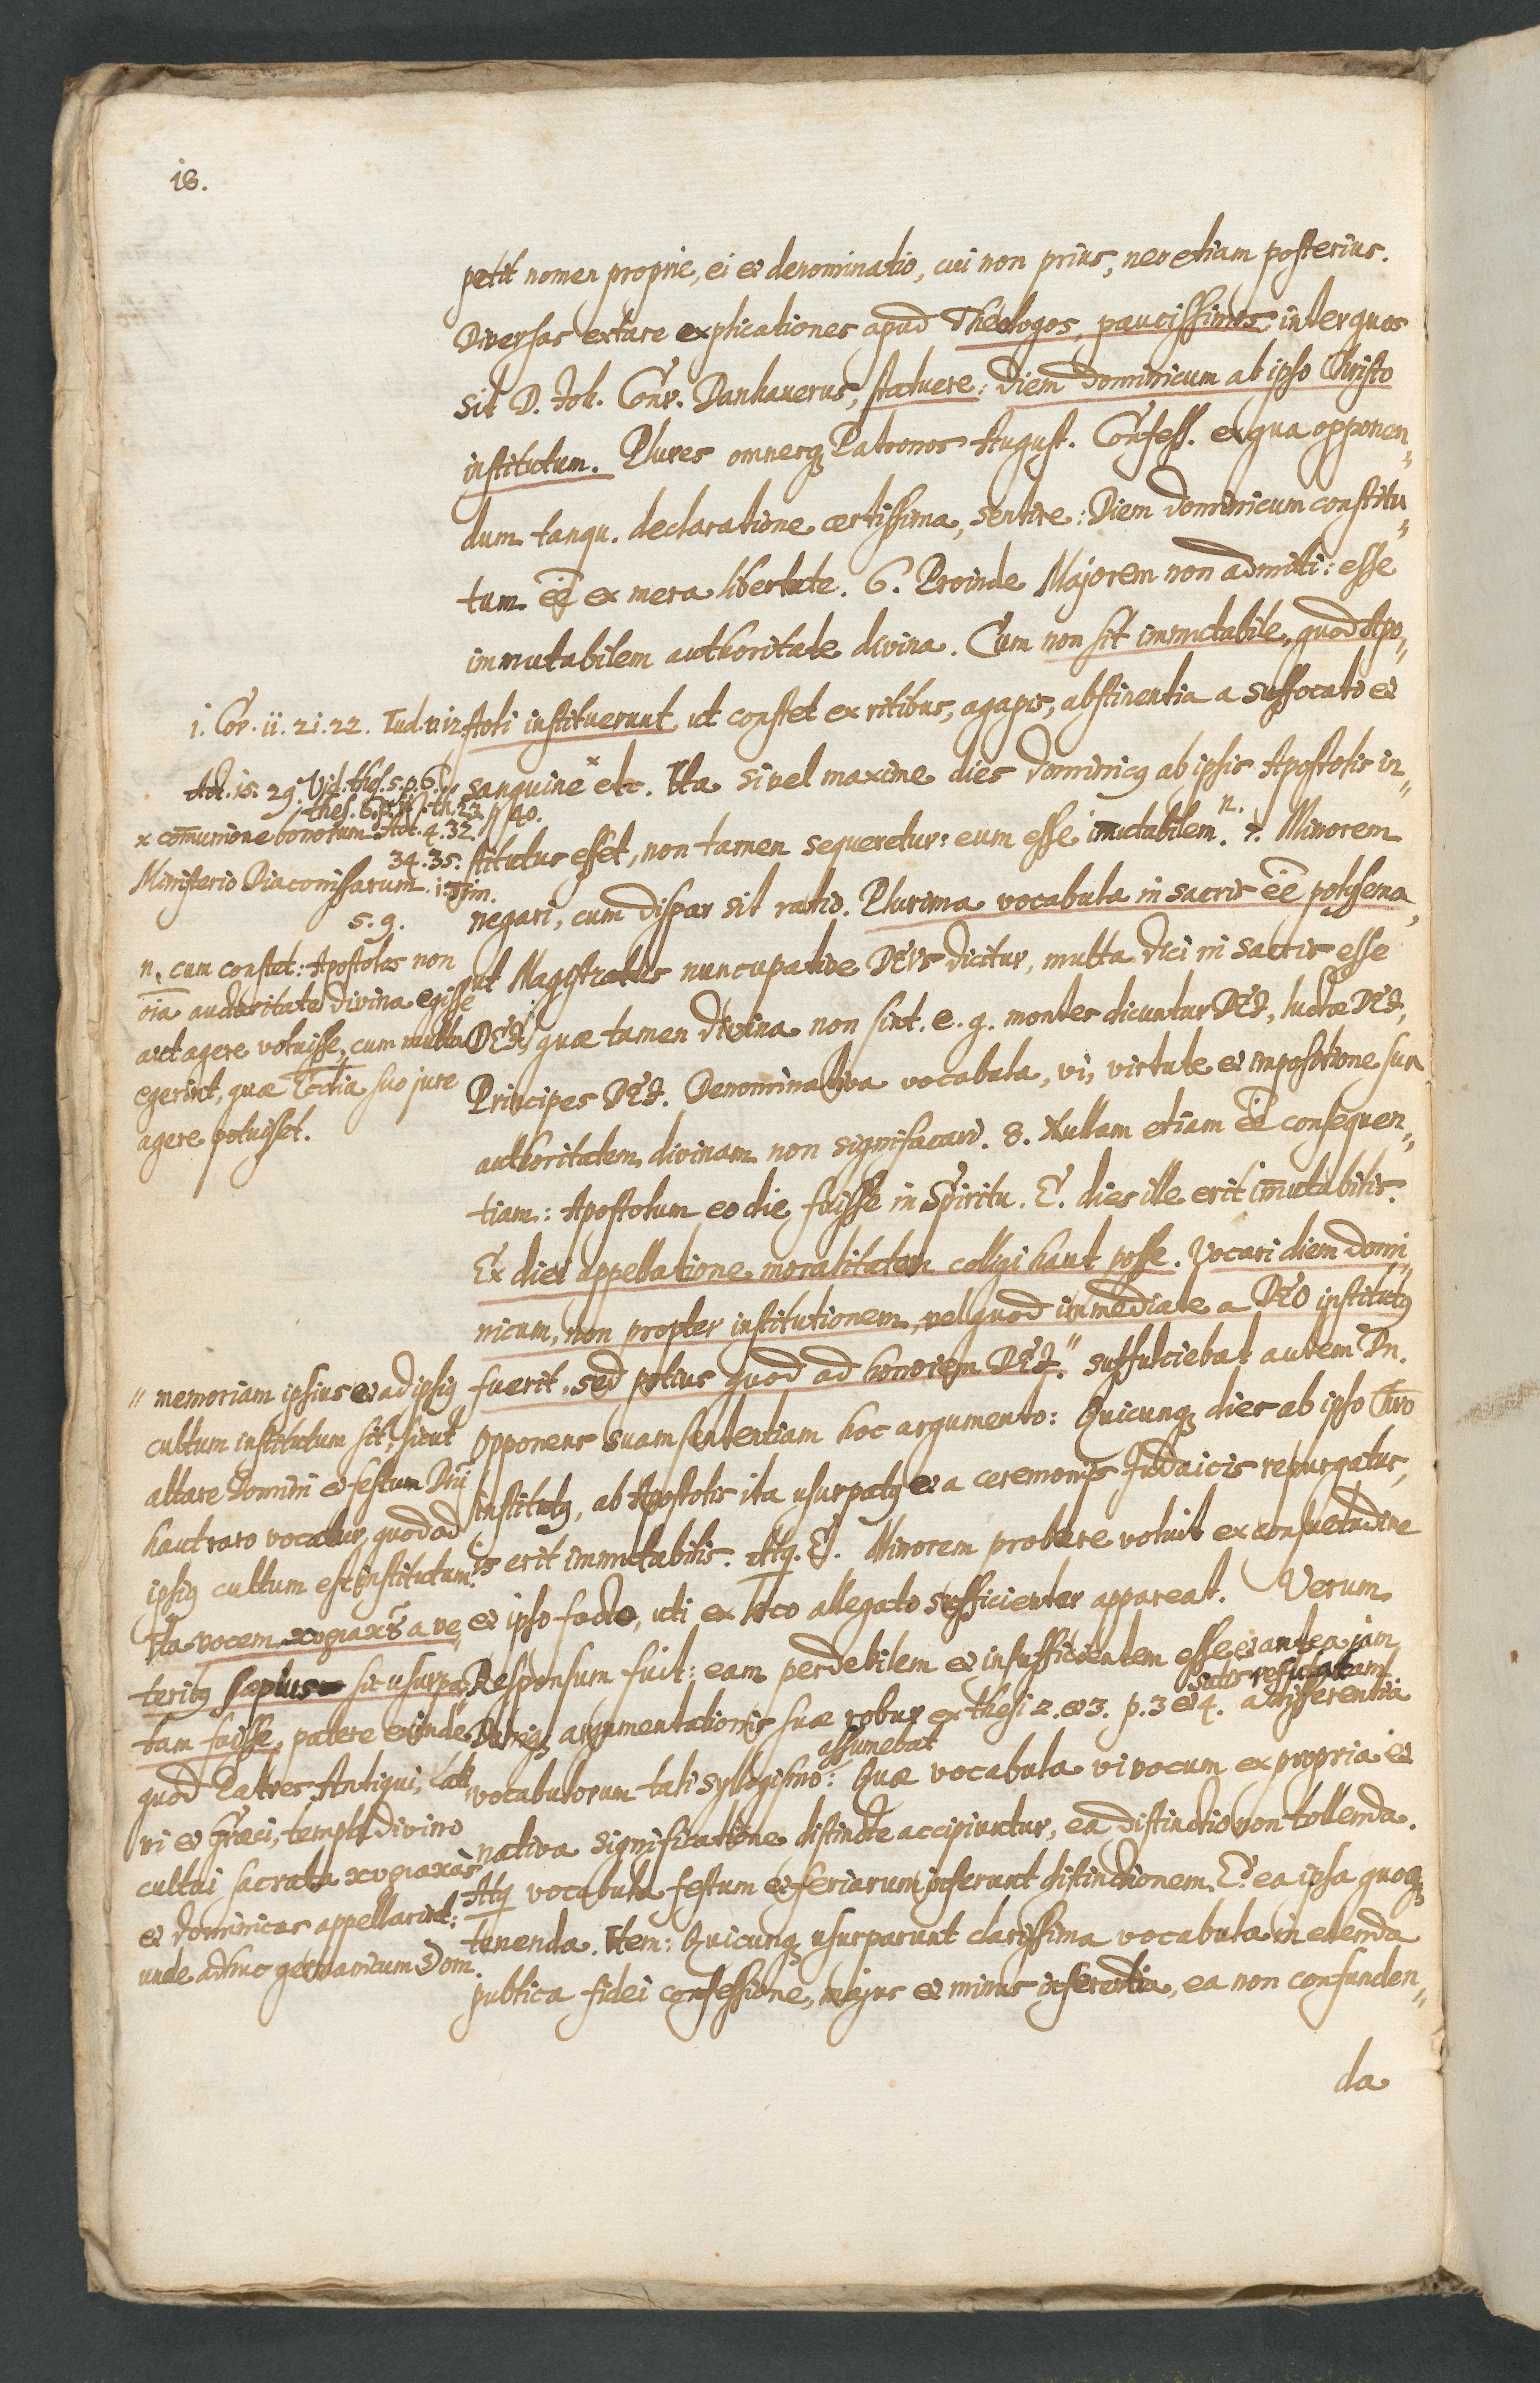 18.
petit nomen proprie, ei et denominatio, cui non prius, nec etiam posterius.
Diversas extare explicationes apud Theologos, paucissimos inter quos
sit D. Joh. Conr. Danhauerus, statuere: diem dominicum ab ipso Christo
institutum. Plures omnesq; Patronos August. Confess. ex qua opponen„
dum tanqu. declaratione certissima, sentire: Diem dominicum constitu„
tum eê ex mera libertate. 6. Proinde Majorem non admitti: esse
immutabilem authoritate divina. Cum non sit immutabile, quod Apo„
stoli instituerunt, ut constet ex ritibus, agapis, abstinentia a suffocato et
sanguine x etc. Ita si vel maxime dies dominicq ab ipsis Apostolis in„
stitutus esset, non tamen sequeretur: eum esse imutabilem. n. 7. Minorem
negari, cum dispar sit ratio. Plurima vocabula in sacris eê polysema,
ut Magistratus nuncupative DEUS dicitur, multa dici in sacris esse
DEI, quæ tamen divina non sint. e. g. montes dicuntur DEI, luctæ DEI,
Principes DEI. Denominativa vocabula, vi, virtute et impositione sua
authoritatem divinam non significare. 8. Nullam etiam eê consequen„
tiam: Apostolum eo die fuisse in Spiritu. E. dies ille erit imutabilis.
Ex diei appellatione moralitatem colligi haut posse. Vocari diem domi„
nicum, non propter institutionem, vel quod immediate a DEO institutq
fuerit, sed potius quod ad honorem DEI." suffulciebat autem Dn.
Opponens suam sententiam hoc argumento: Quicunq; dies ab ipso Chro
institutq, ab Apostolis ita usurpatq et a ceremoniis Judaicis repurgatus,
is erit immutabilis. Atq. E. Minorem probare voluit ex consuetudine
et ipso facto, uti ex loco allegato sufficienter appareat. Verum
Responsum fuit: eam perdebilem et insufficientem esse et antea jam
satis refutatam.
Deniq; argumentationis suæ robur ex thesi 2. et 3. p. 3 et 4. a differentia
assumebat
vocabulorum tali syllogismo: Quæ vocabula vi vocum ex propria et
nativa significatione distincte accipiuntur, ea distinctio non tollenda.
Atq vocabula festum et feriarum inferunt distinctionem. E. ea ipsa quoq;
tenenda. Item: Quicunq; usurparunt clarissima vocabula in edenda
publica fidei confessione, majus et minus inferentia, ea non confunden„
da
1. Cor. 11. 21. 22. Jud. v. 12.
Act. 15. 29. Vid. thes. 5. p. 6.
thes. 6. p. th. 23. p 40.
x comunione bonorum Act. 4. 32.
34. 35.
Ministerio Diaconissarum. 1. Tim.
5. 9.
n. cum constet: Apostolos non
oia authoritate divina egisse
aut agere voluisse, cum multa
egerint, quæ Ecclia suo jure
agere potuisset.
" memoriam ipsius et ad ipsiq
cultum institutum sit, sicut
altare domini et festum Dni
haut raro vocatur, quod ad
ipsiq cultum est institutum.
Ita vocem κυριακῆς a ve„
teribq sæpius sic usurpa„
tam fuisse, patere exinde
quod Patres Antiqui, Lati„
ni et Græci, templa divino
cultui sacrata κυριακὰς
et dominicas appellarint:
unde adhuc germanicum Dom.